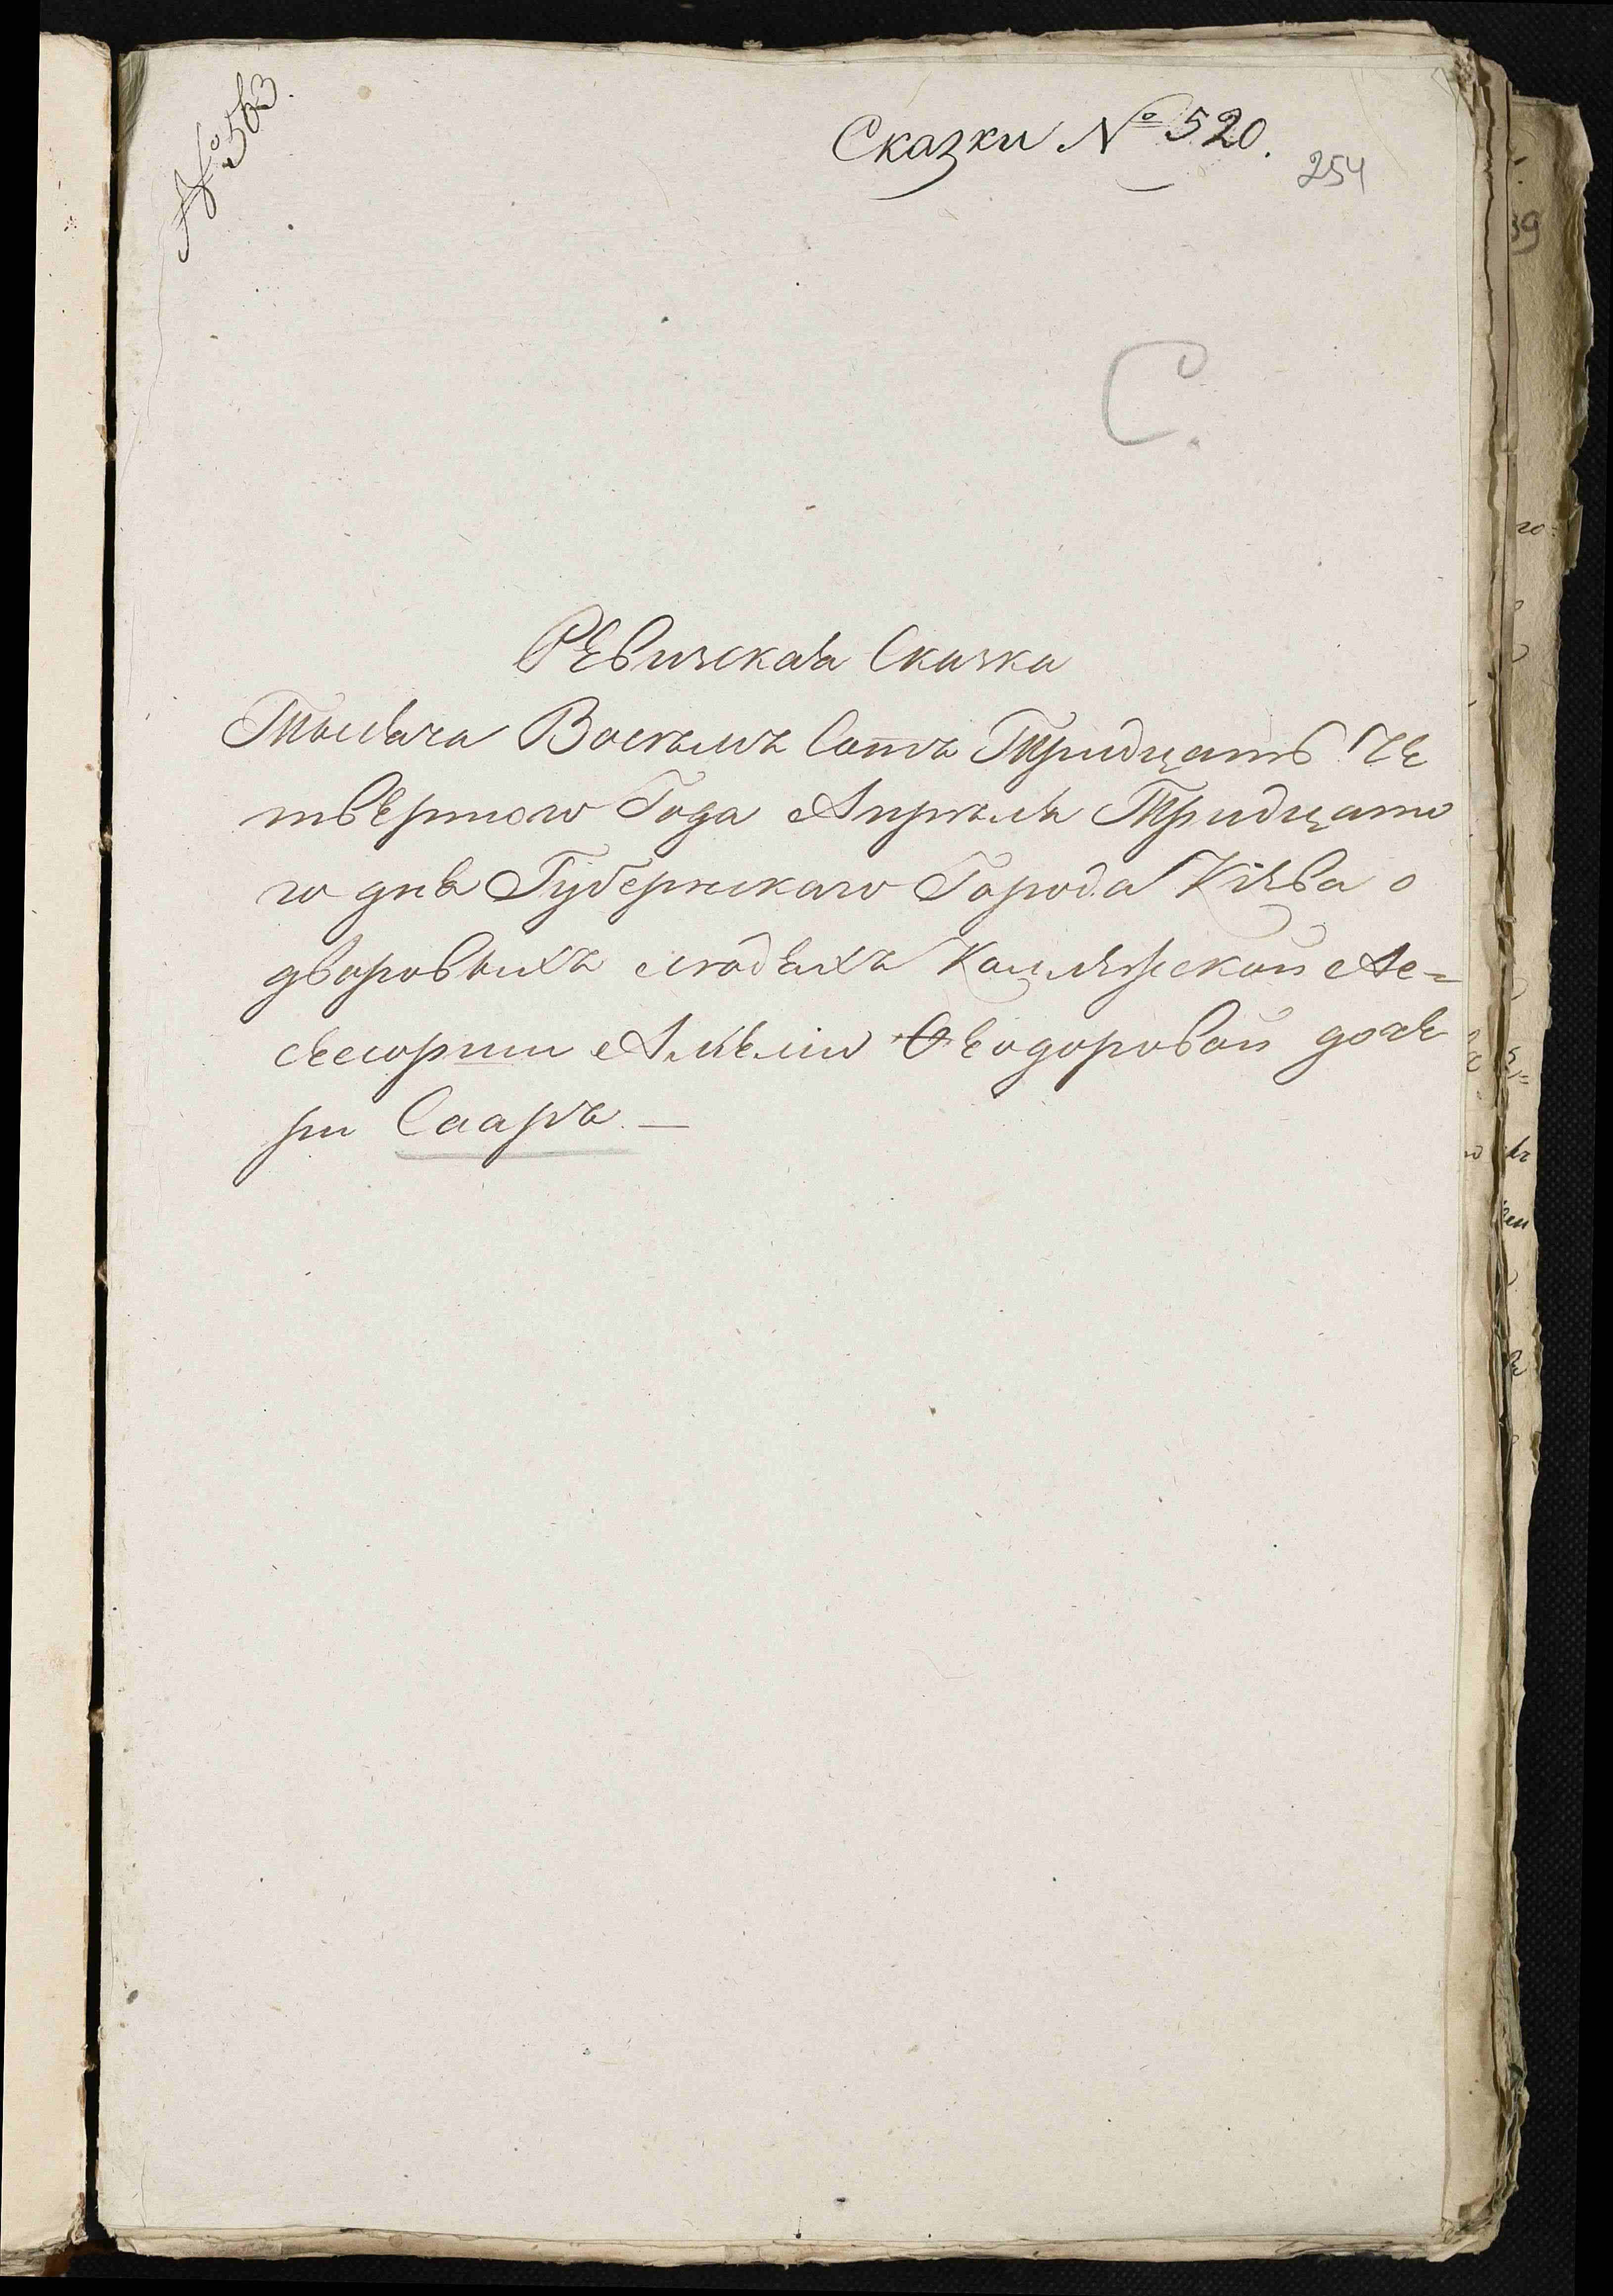 № 563.
Сказки № 520.
254
С.
Ревизская Сказка
Тысяча Восемъ Сотъ Тридцать Че
твертого Года Апреля Тридцато
го дня Губернскаго Города Кіева о
дворовыхъ людяхъ Колляжской Ас=
сесорши Амеліи Феодоровой доче
ри Сааръ. —